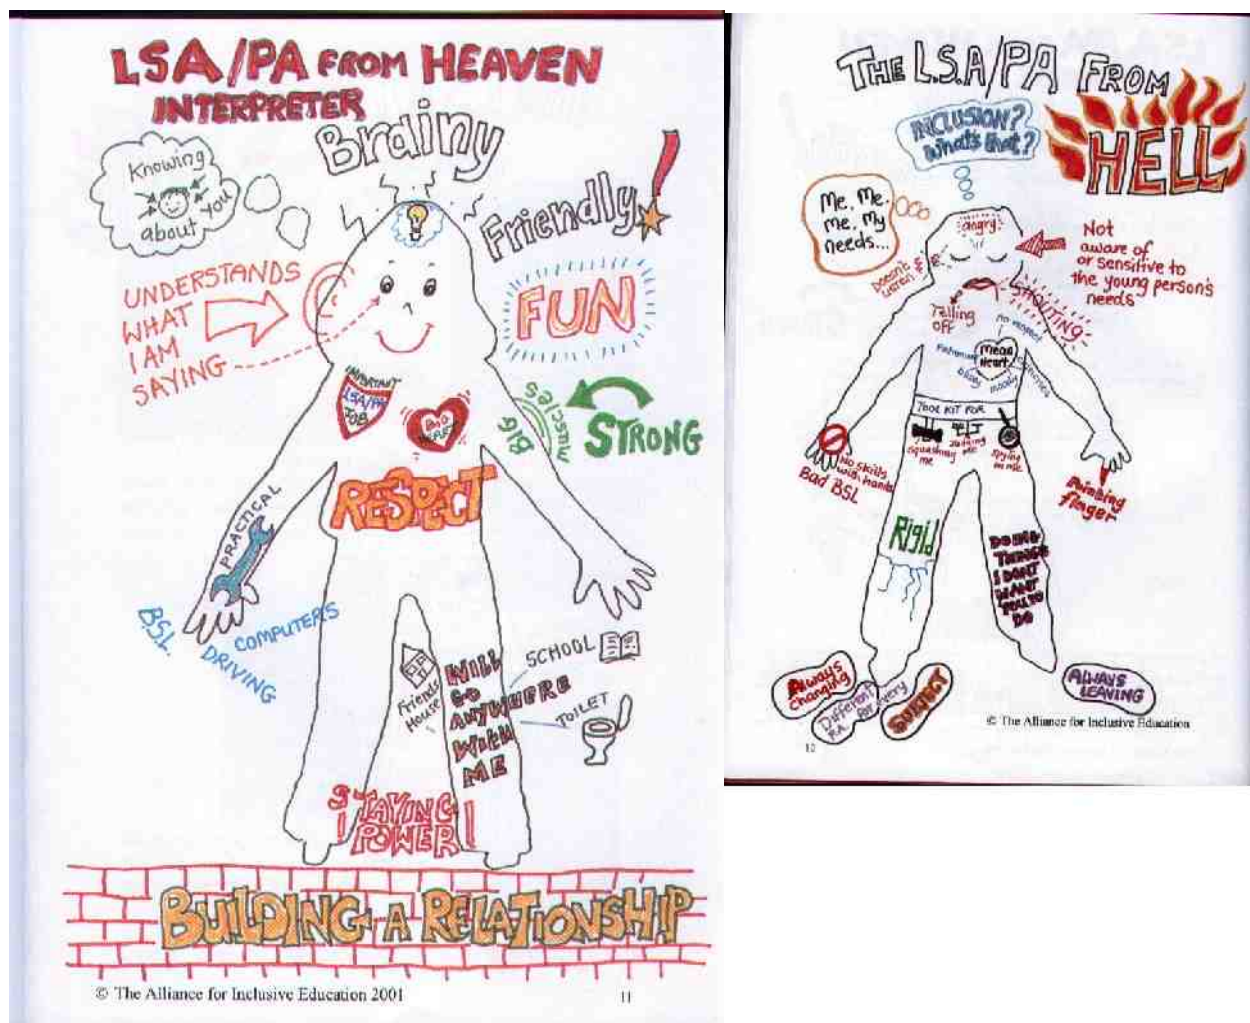 LSA/PA FROM HEAVEN
INTERPRETER
Brainy
Knowing
about
you
Friendly!
UNDERSTANDS
WHAT
I AM
SAYING
FUN
IMPORTANT
LSA/PA
JOB
BIG
HEART
BIG
MUSCLES
STRONG
RESPECT
PRACTICAL
B.S.L.
COMPUTERS
DRIVING
Friends
House
WILL
GO
ANYWHERE
WITH
ME
SCHOOL
TOILET
STAYING
POWER!
BUILDING A RELATIONSHIP
© The Alliance for Inclusive Education 2001
11
THE L.S.A/PA FROM
HELL
INCLUSION?
What's that?
Me, Me,
me, My
needs...
angry
Not
aware of
or sensitive to
the young person's
needs
Doesn't
listen
Telling
off
SHOUTING
no respect
Mean
Heart
bossy
moody
TOOL KIT FOR
squashing
me
Judging
me
spying
on me
No skills
with hands
Bad BSL
Pointing
finger
Rigid
DOING
THINGS
I DON'T
WANT
YOU TO
DO
Always
changing
Different
P.A. for every
SUBJECT
ALWAYS
LEAVING
© The Alliance for Inclusive Education
12